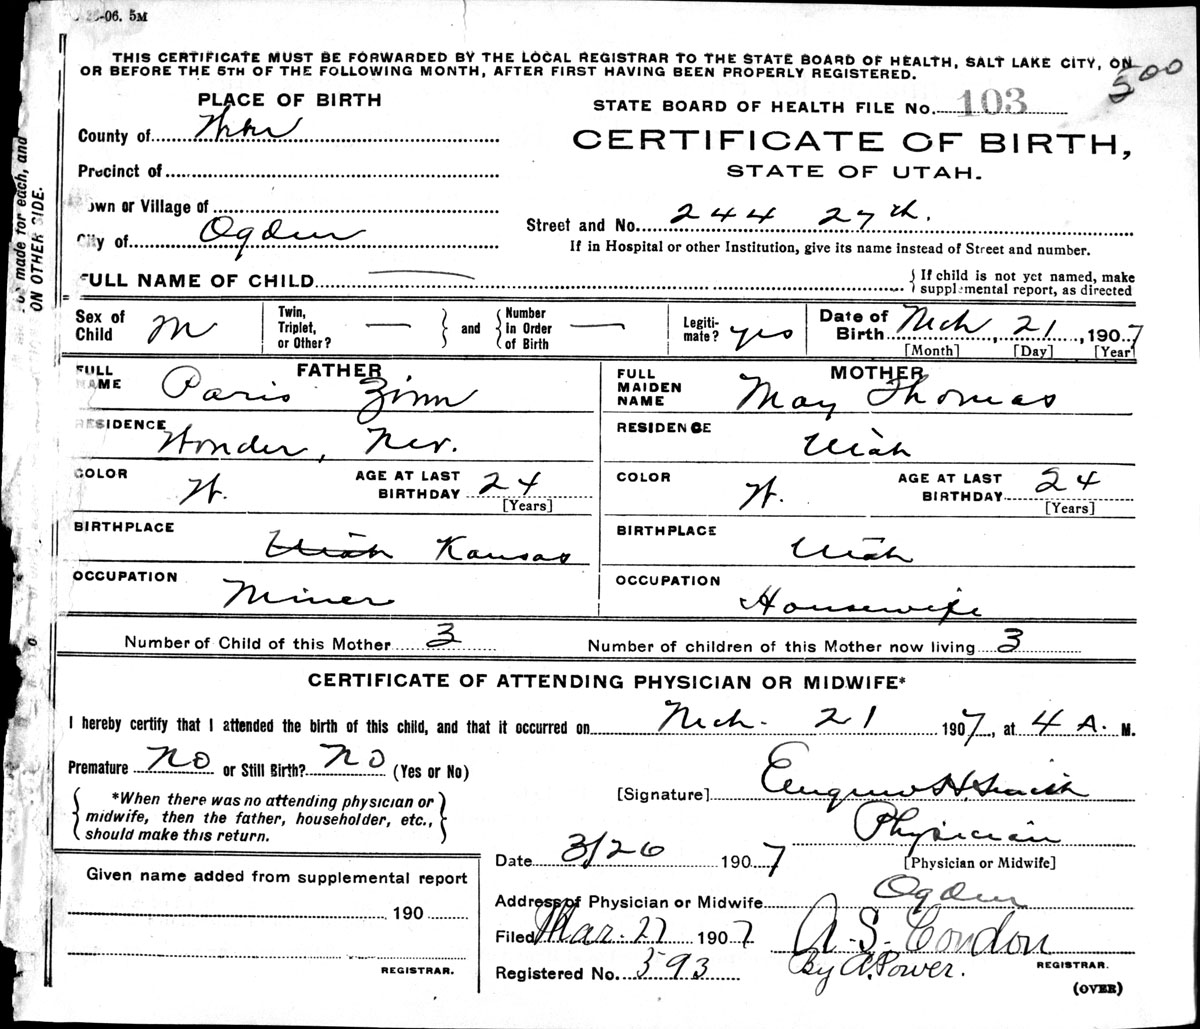 -06. 5M
THIS CERTIFICATE MUST BE FORWARDED BY THE LOCAL REGISTRAR TO THE STATE BOARD OF HEALTH, SALT LAKE CITY, ON
OR BEFORE THE 5TH OF THE FOLLOWING MONTH, AFTER FIRST HAVING BEEN PROPERLY REGISTERED.
500
PLACE OF BIRTH
STATE BOARD OF HEALTH FILE No. 103
County of Weber
CERTIFICATE OF BIRTH,
Precinct of
STATE OF UTAH.
Town or Village of
Street and No. 244 27th.
City of Ogden
If in Hospital or other Institution, give its name instead of Street and number.
FULL NAME OF CHILD
{ If child is not yet named, make
supplemental report, as directed
made for each, and
ON OTHER SIDE.
Sex of Child M
Twin, Triplet, or Other? —
and
Number in Order of Birth —
Legiti- mate? yes
Date of Birth Mch 21, 1907
[Month] [Day] [Year]
FATHER
FULL NAME Paris Zinn
MOTHER
FULL MAIDEN NAME May Thomas
RESIDENCE Wonder, Nev.
RESIDENCE Utah
COLOR W. AGE AT LAST BIRTHDAY 24 [Years]
COLOR W. AGE AT LAST BIRTHDAY 24 [Years]
BIRTHPLACE Utah Kansas
BIRTHPLACE Utah
OCCUPATION Miner
OCCUPATION Housewife
Number of Child of this Mother 3 Number of children of this Mother now living 3
CERTIFICATE OF ATTENDING PHYSICIAN OR MIDWIFE*
I hereby certify that I attended the birth of this child, and that it occurred on Mch. 21 1907, at 4 A. M.
Premature No or Still Birth? No (Yes or No)
[Signature] Eugene H. Smith
*When there was no attending physician or
midwife, then the father, householder, etc.,
should make this return.
Physician
[Physician or Midwife]
Date 3/26 1907
Given name added from supplemental report
190
REGISTRAR.
Address of Physician or Midwife Ogden
Filed Mar. 27 1907 A. S. Condon
REGISTRAR.
Registered No. 593 By A. Power.
(OVER)